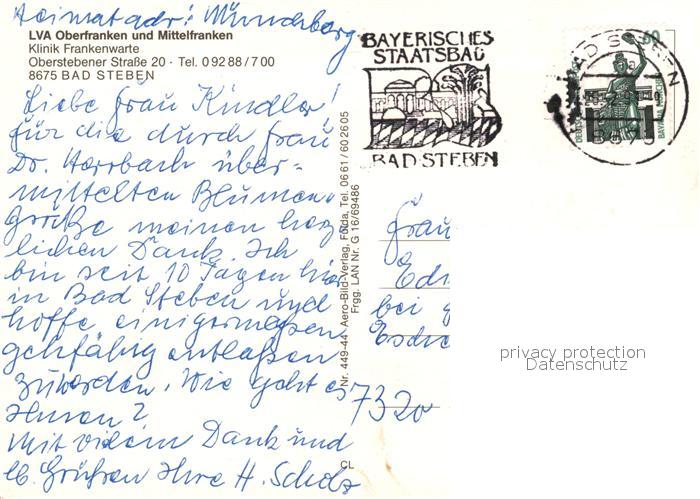 Heimatadr.: Münchberg
LVA Oberfranken und Mittelfranken
Klinik Frankenwarte
Oberstebener Straße 20 · Tel. 0 92 88 / 7 00
8675 BAD STEBEN
Liebe Frau Kindler!
für die durch Frau
Dr. Horrbach über-
mittelten Blumen-
grüße meinen herz
lichen Dank. Ich
bin seit 10 Tagen hier
in Bad Steben und
hoffe einigermaßen
gehfähig entlassen
zu werden. Wie geht es
Ihnen?
Mit vielem Dank und
lb. Grüßen Ihre H. Scholz
Nr. 449-44 Aero-Bild-Verlag, Fulda, Tel. 0661/602605
Frgg. LAN Nr. G 16/69486
CL
BAYERISCHES
STAATSBAD
BAD STEBEN
BAD STEBEN
8675
60
Frau
bei
7320
privacy protection
Datenschutz